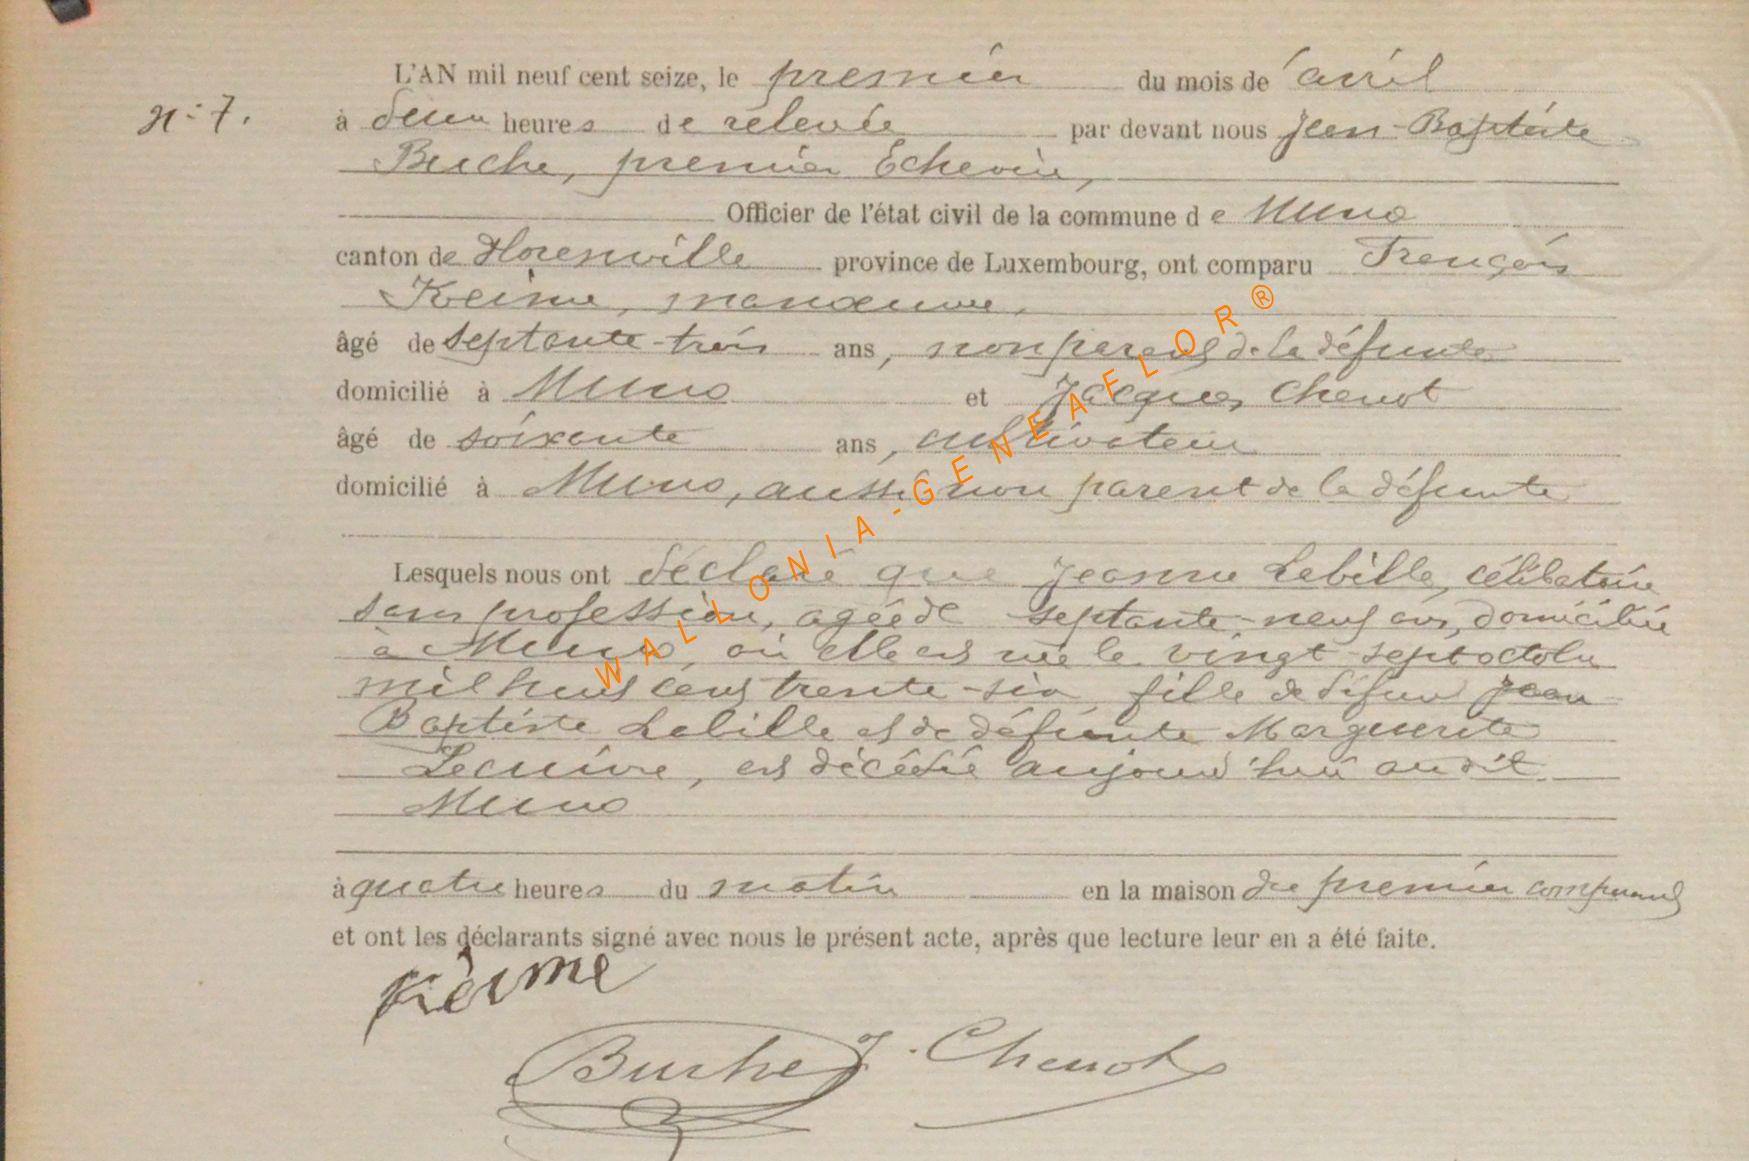 L'AN mil neuf cent seize, le premier du mois de avril
n° 7. à deux heures de relevée par devant nous Jean-Baptiste
Buche, premier Echevin,
Officier de l'état civil de la commune de Muno
canton de Florenville province de Luxembourg, ont comparu François
manoeuvre,
âgé de septante-trois ans, non parent de la défunte
domicilié à Muno et Jacques Chenot
âgé de soixante ans, cultivateur
domicilié à Muno, aussi non parent de la défunte
Lesquels nous ont déclaré que Jeanne Lebille, célibataire
sans profession, agée de septante-neuf ans, domiciliée
à Muno, où elle est née le vingt sept octobre
mil huit cent trente-six, fille de défunt Jean
Baptiste Lebille et de défunte Marguerite
Lecuivre, est décédée aujourd'hui au dit
Muno
à quatre heures du matin en la maison du premier comparant
et ont les déclarants signé avec nous le présent acte, après que lecture leur en a été faite.
Buche J. Chenot
WALLONIA-GENEAFLOR®